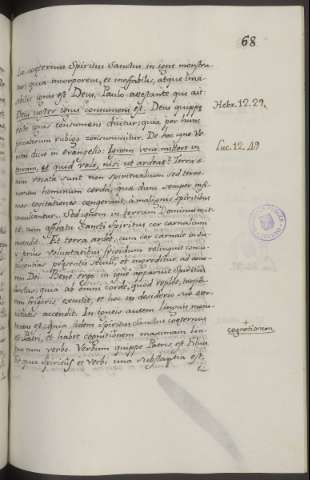 68
Co æternus Spiritus Sanctus, in igne monstra
tur: quia incorporeus, et ineffabilis, atque invi
sibilis ignis est Deus, Paulo attestante qui ait
Deus noster ignis consumens est. Deus quippe
ignis consumens dicitur, quia per hunc
peccatorum rubigo consummitur. De hoc igne Ve
ritas dicit in evangelio: Ignem veni mittere in
terram, et quid volo, nisi ut ardeat? Terra e
nim vocata sunt non spiritualium sed terre
norum hominum corda, quæ dum semper infi
mas cogitationes congerunt, a malignis spiritibus
conculcantur. Sed ignem in terram Dominus mit
tit, cum afflatu Sancti Spiritus cor carnalium
incendit. Et terra ardet, cum cor carnale in su
is pravis voluptatibus frigidum relinquit concu
piscentias præsentis sæculi, et ingreditur ad amo
rem Dei. Bene ergo in igne apparuit Spiritus
Sanctus, quia ab omni corde, quod replet, torpo
rem frigoris excutit, et hoc in desiderio suæ æter
nitatis accendit. In igneis autem linguis mons
tratus est, quia idem Spiritus Sanctus coæternus
est Patri, et habet cognitionem maximam lin
gua cum verbo. Verbum quippe Patris est Filius
et quia Spiritus et verbi una substantia est,
Hebr. 12. 29.
Luc. 12. 49
cognationem